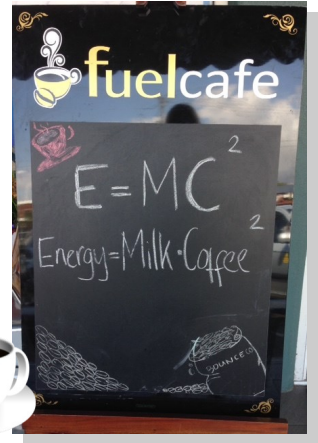 fuelcafe
E=MC²
Energy=Milk·Coffee²
BOUNCE